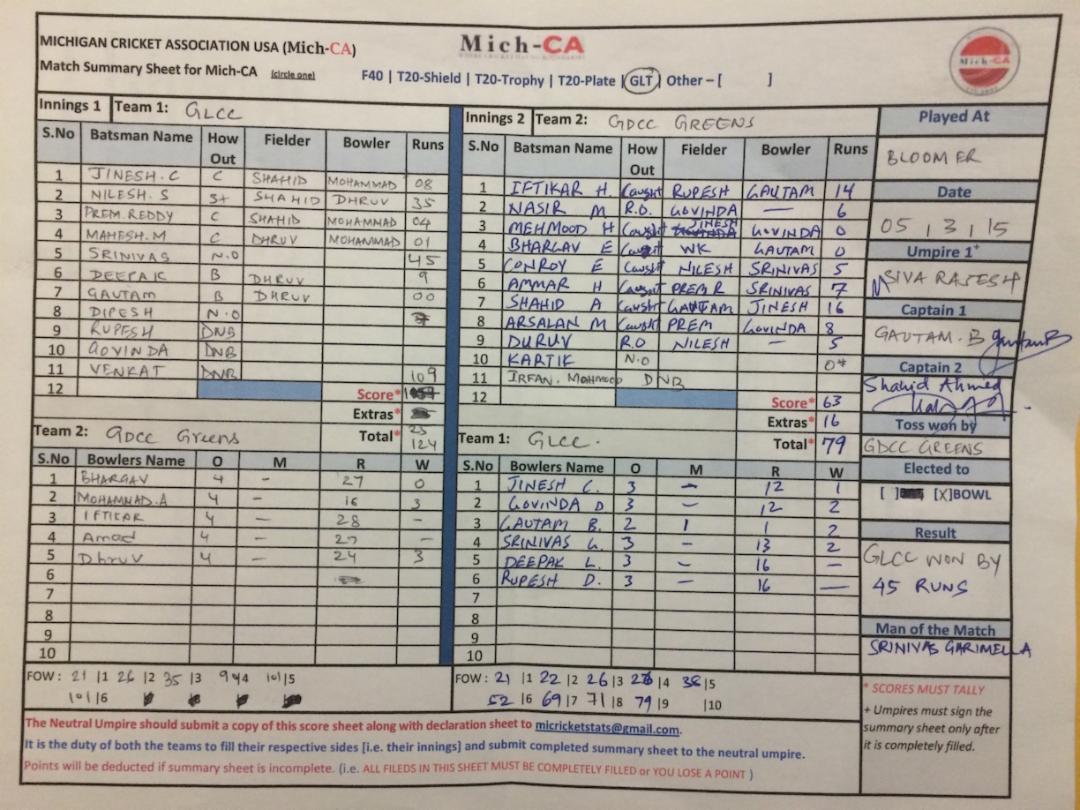 MICHIGAN CRICKET ASSOCIATION USA (Mich-CA)
Mich-CA
Match Summary Sheet for Mich-CA (circle one) F40 | T20-Shield | T20-Trophy | T20-Plate | GLT | Other – [ ]
Mich-CA
Innings 1 Team 1: GLCC
S.No Batsman Name How Out Fielder Bowler Runs
1 JINESH.C C SHAHID MOHAMMAD 08
2 NILESH.S St SHAHID DHRUV 35
3 PREM.REDDY C SHAHID MOHAMMAD 04
4 MAHESH.M C DHRUV MOHAMMAD 01
5 SRINIVAS N.O 45
6 DEEPAK B DHRUV 9
7 GAUTAM B DHRUV 00
8 DIPESH N.O
9 RUPESH DNB
10 GOVINDA DNB
11 VENKAT DNB
12
109
Score*
Extras*
23
Total* 124
Team 2: GDCC Greens
S.No Bowlers Name O M R W
1 BHARGAV 4 – 27 0
2 MOHAMMAD.A 4 – 16 3
3 IFTIKAR 4 – 28 –
4 Amad 4 – 27 –
5 Dhruv 4 – 24 3
6
7
8
9
10
FOW: 21 |1 26 |2 35 |3 94 4 101|5
101|6
Innings 2 Team 2: GDCC GREENS
S.No Batsman Name How Out Fielder Bowler Runs
1 IFTIKAR H Caught RUPESH GAUTAM 14
2 NASIR M R.O. GOVINDA — 6
3 MEHMOOD H Caught JINESH GOVINDA 0
4 BHARGAV E Caught WK GAUTAM 0
5 CONROY E Caught NILESH SRINIVAS 5
6 AMMAR H Caught PREM R SRINIVAS 7
7 SHAHID A Caught GAUTAM JINESH 16
8 ARSALAN M Caught PREM GOVINDA 8
9 DURUV R.O NILESH – 5
10 KARTIK N.O 0*
11 IRFAN. Mahmood DNB
12
Score* 63
Extras* 16
Total* 79
Team 1: GLCC.
S.No Bowlers Name O M R W
1 JINESH C. 3 – 12 1
2 GOVINDA D 3 – 12 2
3 GAUTAM B. 2 1 1 2
4 SRINIVAS G. 3 – 13 2
5 DEEPAK L. 3 – 16 –
6 RUPESH D. 3 – 16 —
7
8
9
10
FOW: 21 |1 22 |2 26 |3 26 |4 38 |5
52 |6 69 |7 71 |8 79 |9 |10
Played At
BLOOMER
Date
05 | 3 | 15
Umpire 1+
SIVA RAJESH
Captain 1
GAUTAM.B
Captain 2
Shahid Ahmed
Toss won by
GDCC GREENS
Elected to
[ ] [X]BOWL
Result
GLCC WON BY
45 RUNS
Man of the Match
SRINIVAS GARIMELLA
* SCORES MUST TALLY
+ Umpires must sign the
summary sheet only after
it is completely filled.
The Neutral Umpire should submit a copy of this score sheet along with declaration sheet to micricketstats@gmail.com.
It is the duty of both the teams to fill their respective sides [i.e. their innings] and submit completed summary sheet to the neutral umpire.
Points will be deducted if summary sheet is incomplete. (i.e. ALL FILEDS IN THIS SHEET MUST BE COMPLETELY FILLED or YOU LOSE A POINT )